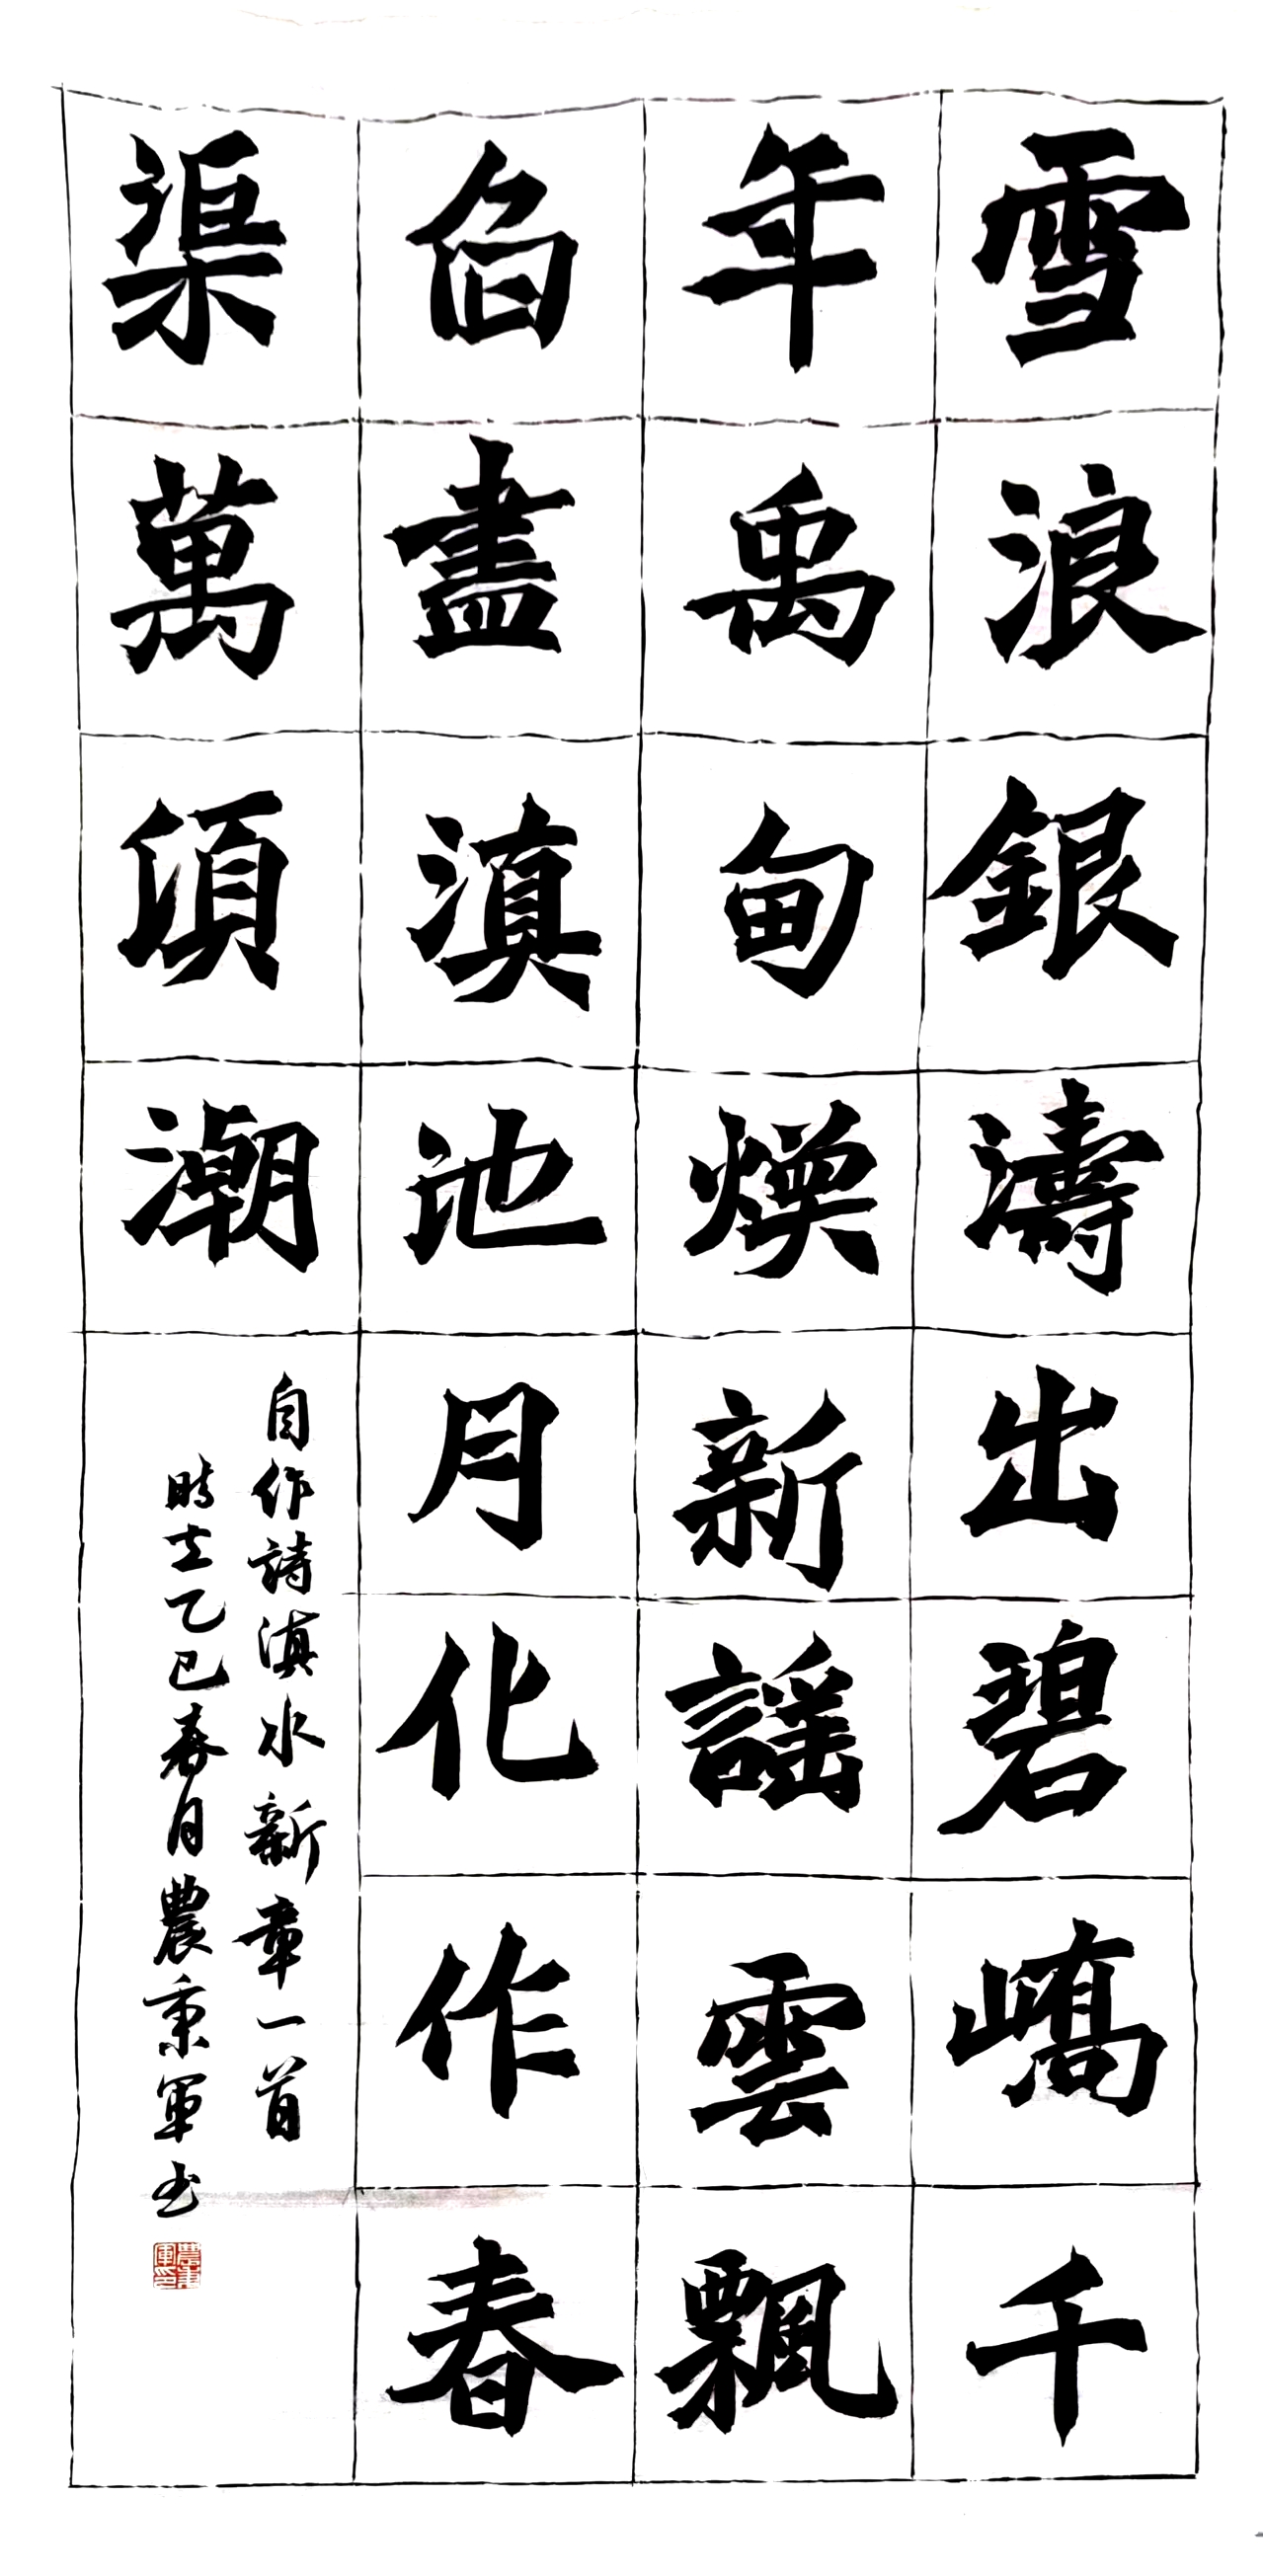 雪浪銀濤出碧嶠千
年禹甸煥新謠雲飄
舀盡滇池月化作春
渠萬頃潮
自作詩滇水新章一首
時在乙巳春月農秉軍书
農秉軍印